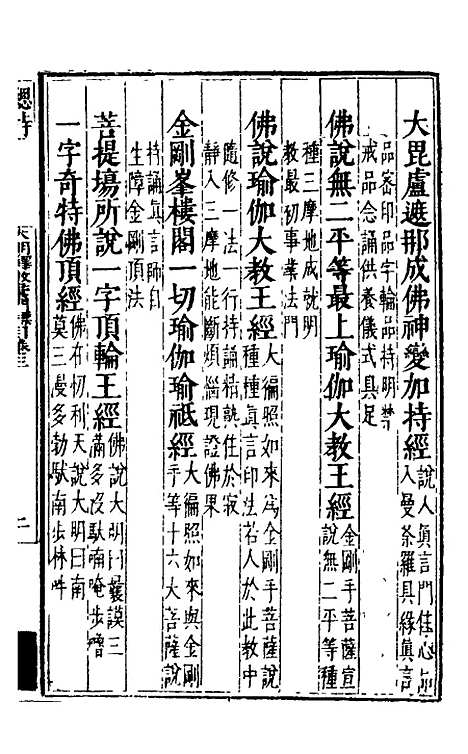 大毘盧遮那成佛神變加持經 說入真言門住心品
入曼荼羅具緣真言
品密印品字輪品持明禁
戒品念誦供養儀式具足
佛說無二平等最上瑜伽大教王經 金剛手菩薩宣
說無二平等種
種三摩地成就明
教最初事業法門
佛說瑜伽大教王經 大徧照如來為金剛手菩薩說
種種真言印法若人於此教中
隨修一法一行持誦精熟住於寂
靜入三摩地能斷煩惱現證佛果
金剛峯樓閣一切瑜伽瑜祇經 大徧照如來與金剛
手等十六大菩薩說
持誦真言師自
生障金剛頂法
菩提場所說一字頂輪王經 佛說大明曰曩謨三
滿多沒馱喃唵步嚕
一字奇特佛頂經 佛在忉利天說大明曰南
莫三曼多勃馱南步林吽
總持
大明釋教彙目義門卷三
二